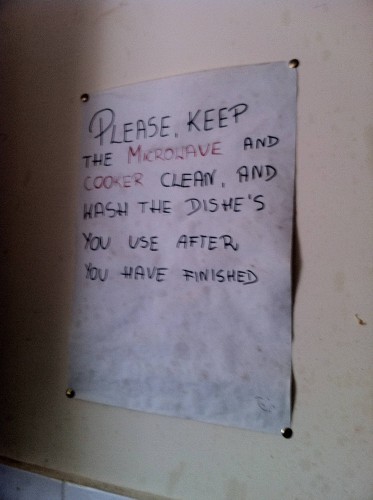 PLEASE, KEEP
THE MICROWAVE AND
COOKER CLEAN, AND
WASH THE DISHE'S
YOU USE AFTER
YOU HAVE FINISHED